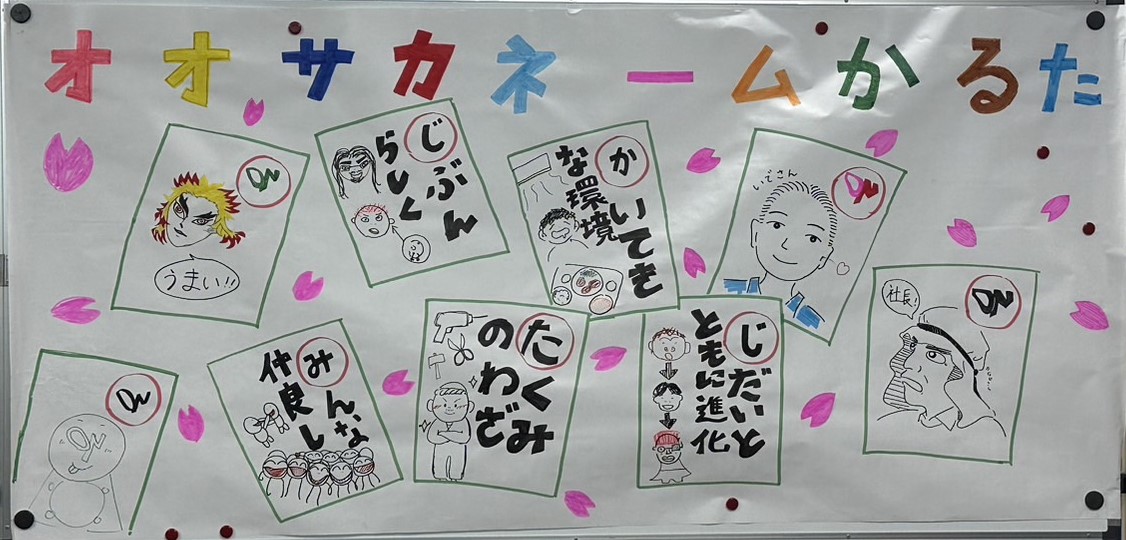 オオサカネームかるた
うまい!!
じぶん
らしく
かいてき
な環境
いでさん
社長!
みんな
仲良し
たくみ
のわざ
じだいと
ともに進化